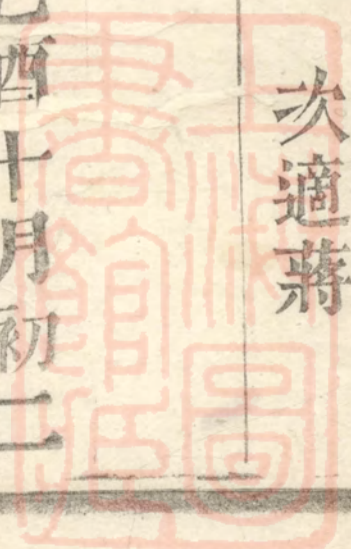 次適蔣
酉十月初二
上海圖
書館藏